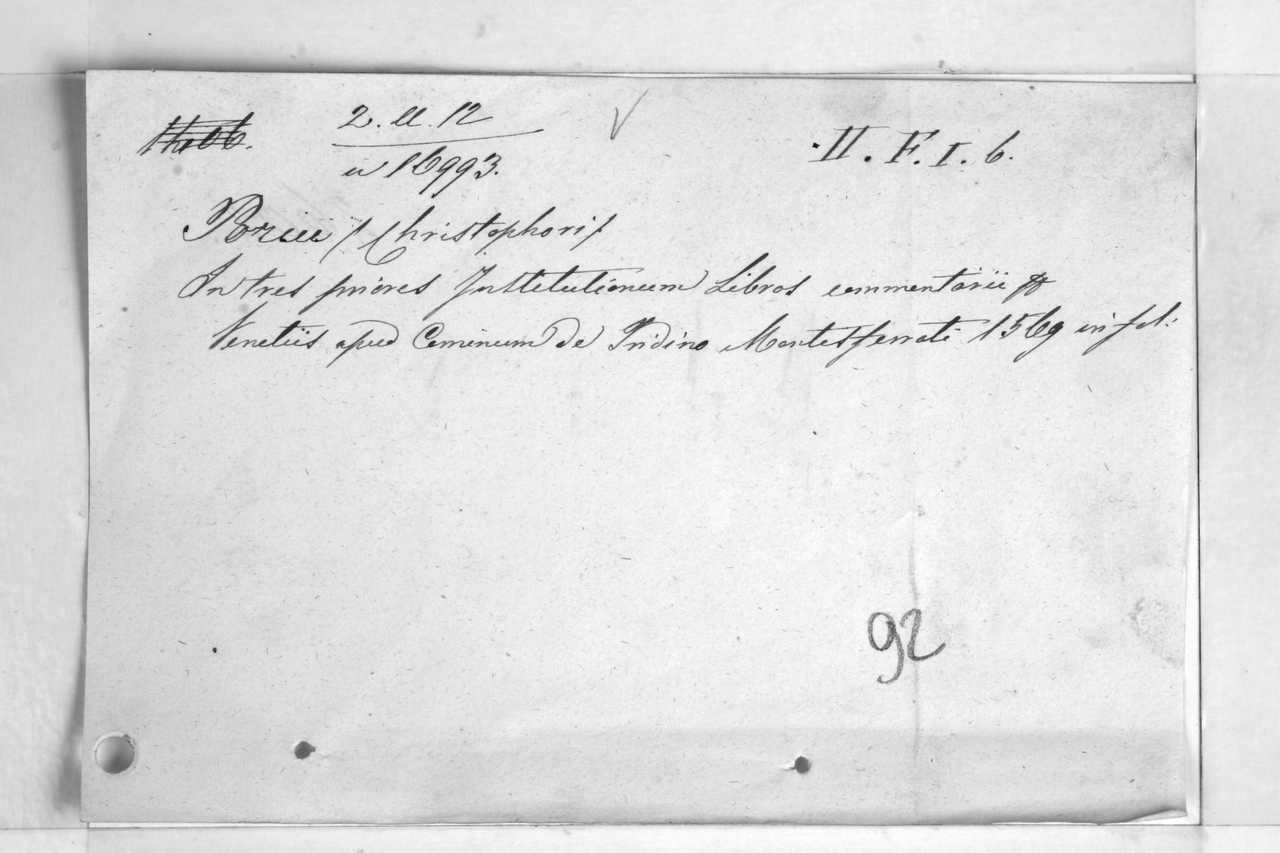 2. u. 12 II. F. I. 6.
u 16993.
Porcii / Christophori /
In tres priores Institutionum Libros commentarii
Venetiis apud Cominum de Tridino Montisferrati 1569 in fol:
92